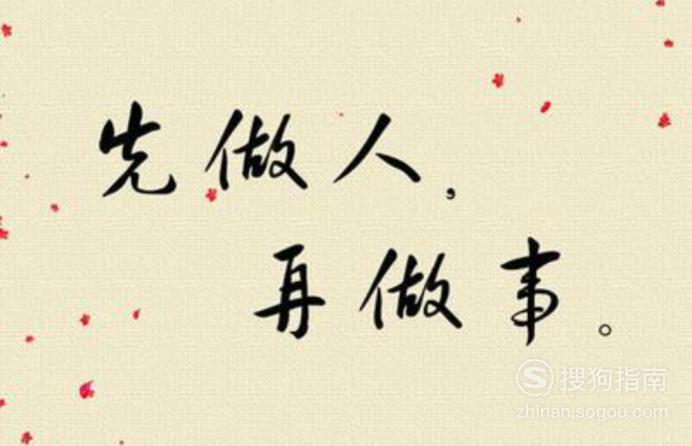 先做人,
再做事。
搜狗指南
zhinan.sogou.com